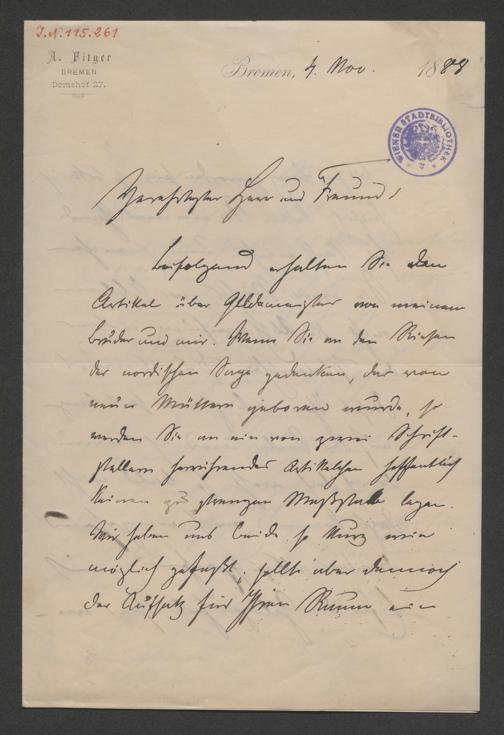 J.N. 115.261
A. Fitger
BREMEN
Domshof 27.
Bremen, 4. Nov. 1888
WIENER STADTBIBLIOTHEK
Verehrtester Herr und Freund,
Beifolgend erhalten Sie den
Artikel über Gildemeister von meinem
Bruder und mir. Wenn Sie an den Riesen
der nordischen Sage gedenken, der von
neun Müttern geboren wurde, so
werden Sie an ein von zwei Schrift-
stellern herrührendes Artikelchen hoffentlich
keinen zu strengen Maßstab legen.
Wir haben uns beide so kurz wie
möglich gefaßt; sollte aber dennoch
der Aufsatz für Ihren Raum ein